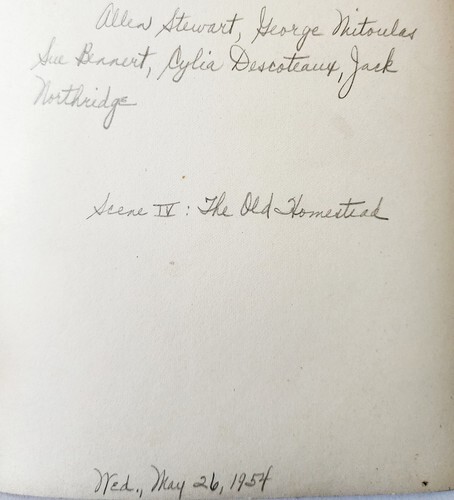 Allen Stewart, George Mitoulas
Sue Bennert, Cylia Descoteaux, Jack
Northridge
Scene IV : The Old Homestead
Wed., May 26, 1954